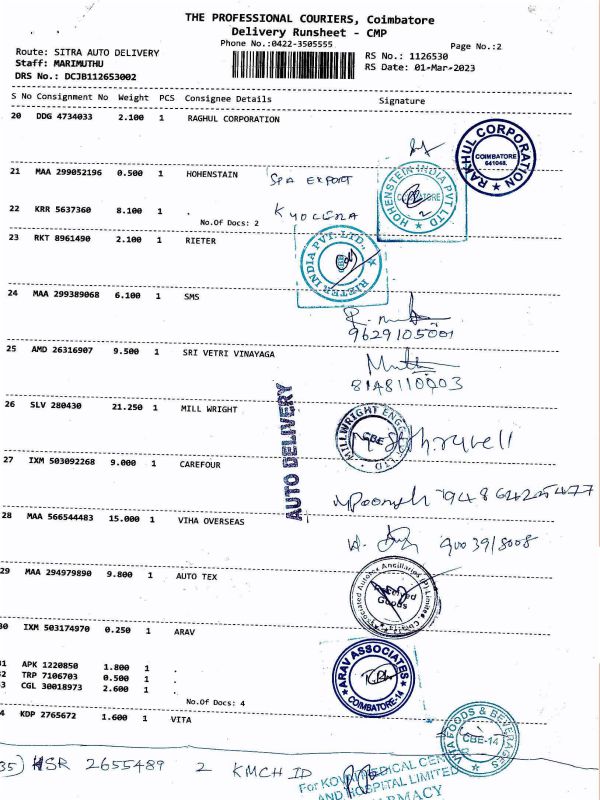 THE PROFESSIONAL COURIERS, Coimbatore
Delivery Runsheet - CMP
Phone No.:0422-3505555
Page No.:2
Route: SITRA AUTO DELIVERY
RS No.: 1126530
Staff: MARIMUTHU
RS Date: 01-Mar-2023
DRS No.: DCJB112653002
S No Consignment No Weight PCS Consignee Details Signature
20 DDG 4734033 2.100 1 RAGHUL CORPORATION
RAKHUL CORPORATION
COIMBATORE
641048.
21 MAA 299052196 0.500 1 HOHENSTAIN SPA EXPORT
HOHENSTEIN INDIA PVT LTD
22 KRR 5637360 8.100 1 . KYOCERA
No.Of Docs: 2
23 RKT 8961490 2.100 1 RIETER
RIETER INDIA PVT. LTD.,
24 MAA 299389068 6.100 1 SMS
9629105001
25 AMD 26316907 9.500 1 SRI VETRI VINAYAGA
8148110003
AUTO DELIVERY
26 SLV 280430 21.250 1 MILL WRIGHT
MILLWRIGHT ENGG
CBE
27 IXM 503092268 9.000 1 CAREFOUR
28 MAA 566544483 15.000 1 VIHA OVERSEAS
29 MAA 294979890 9.800 1 AUTO TEX
Ancillaries (P) Limited
Goods
30 IXM 503174970 0.250 1 ARAV
ARAV ASSOCIATES
COIMBATORE-14
31 APK 1220850 1.800 1 .
32 TRP 7106703 0.500 1 .
33 CGL 30018973 2.600 1 .
No.Of Docs: 4
34 KDP 2765672 1.600 1 VITA
VITA FOODS & BEVERAGES
CBE-14
35) HSR 2655489 2 KMCH ID
For KOVAI MEDICAL CENTER
AND HOSPITAL LIMITED
PHARMACY